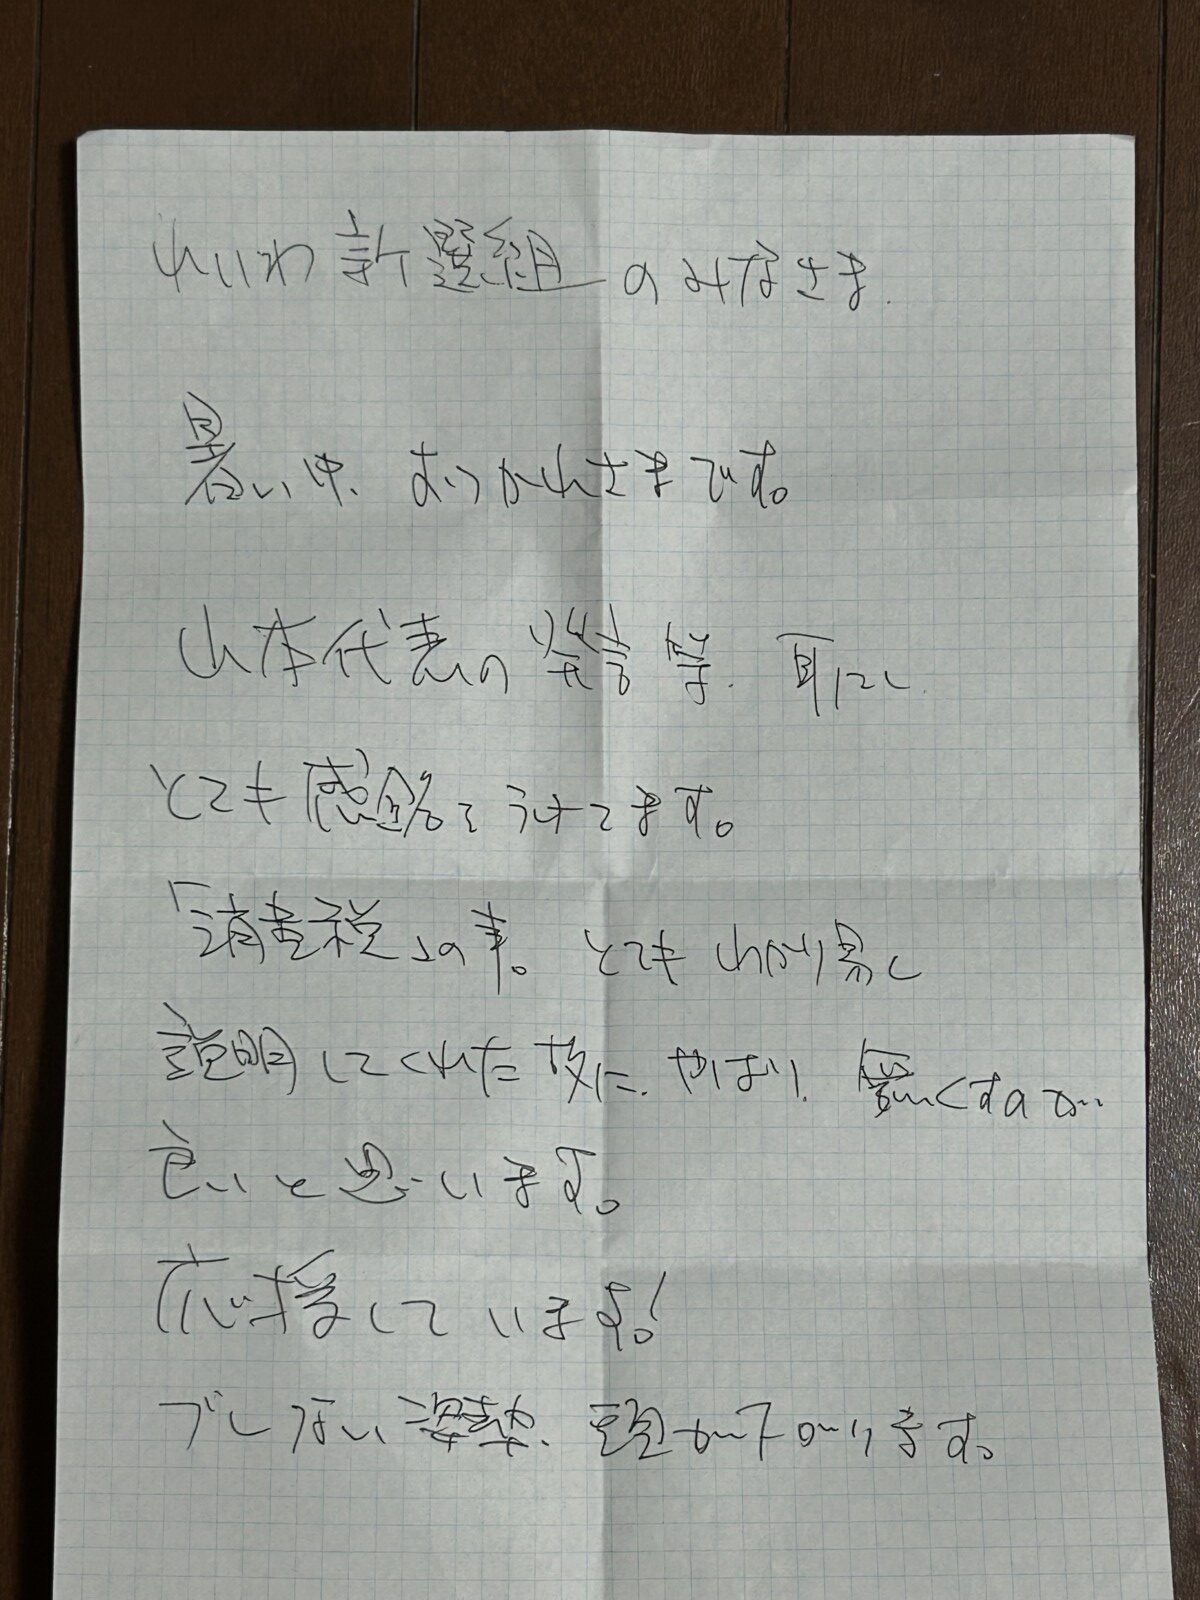 れいわ新選組のみなさま.
暑い中、おつかれさまです。
山本代表の発言等、耳にし、
とても感銘をうけてます。
「消費税」の事。とてもわかり易く
説明してくれた故に、やはり、無くすのが
良いと思います。
応援しています!
ブレない姿勢、頭が下がります。